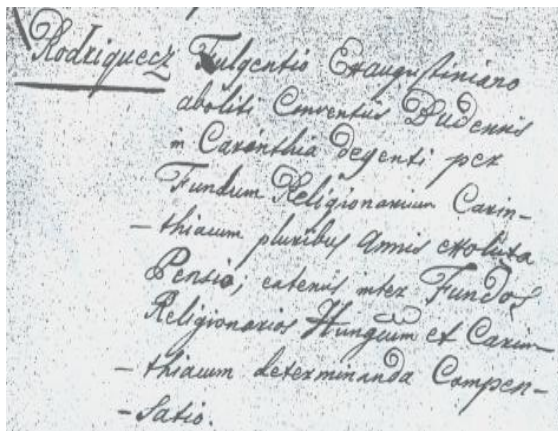 Rodriquecz Fulgentio Exaugustiniano
aboliti Conventûs Budensis
in Carinthia degenti per
Fundum Religionarium Carin-
-thiacum pluribus Annis exoluta
Pensio; eatenus inter Fundos
Religionarios Hungcum et Carin-
-thiacum determinanda Compen-
-satio.